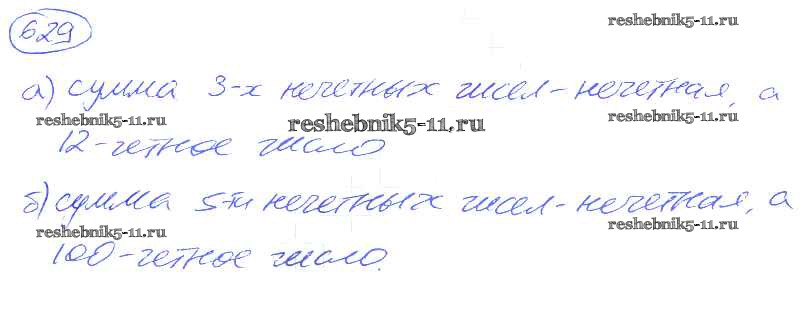 629
reshebnik5-11.ru
а) сумма 3-х нечетных чисел - нечетная, а
reshebnik5-11.ru reshebnik5-11.ru reshebnik5-11.ru
12 - четное число
б) сумма 5-ти нечетных чисел - нечетная, а
reshebnik5-11.ru reshebnik5-11.ru
100 - четное число.
reshebnik5-11.ru